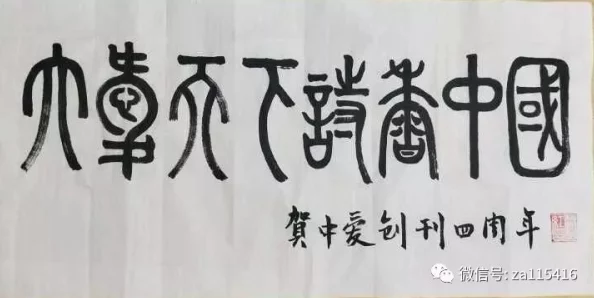 大愛天下詩書中國
賀中爱创刊四周年
微信号: za115416